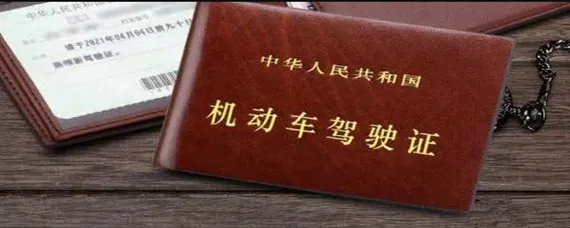 中华人民共和国
请于2021年04月04日前九十日
换领新驾驶证。
中华人民共和国
机动车驾驶证